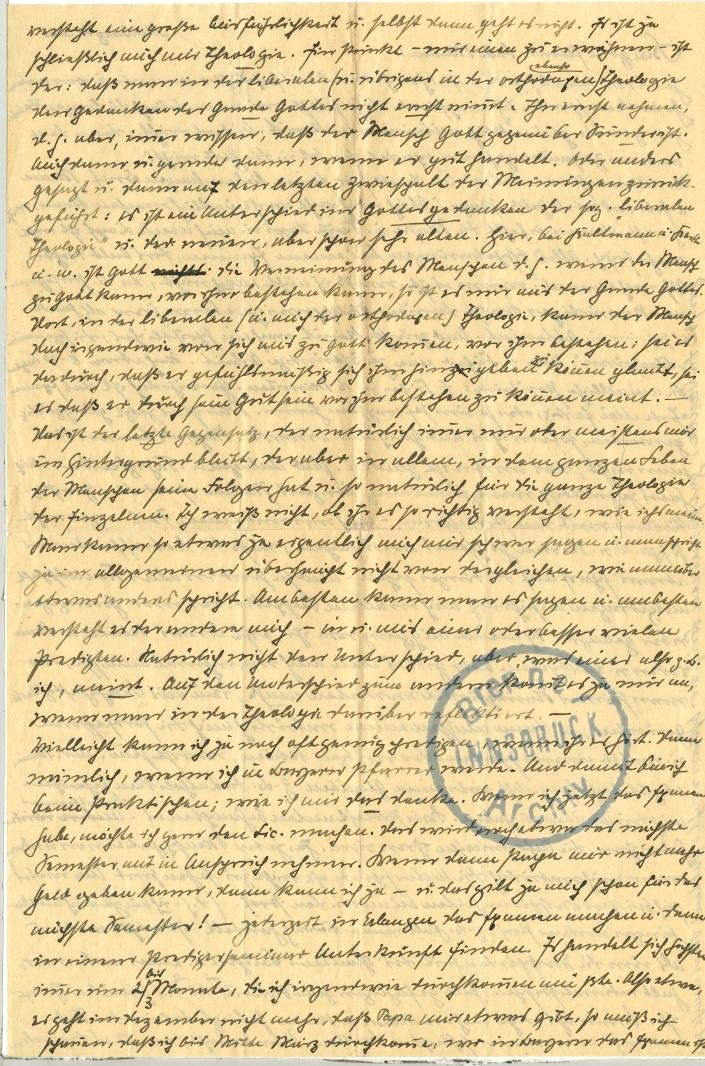 versteht eine große Ausführlichkeit u. selbst dann geht es nicht. Es ist ja
schließlich auch nur Theologie. Ein Punkt – nur einen zu erwähnen – ist
der: daß man in der liberalen (u. übrigens in der orthodoxen ebenso) Theologie
den Gedanken der Gnade Gottes nicht ernst nimmt. Ihn ernst nehmen,
d. h. aber, immer wissen, daß der Mensch Gott gegenüber Sünder ist.
Auch dann u. gerade dann, wenn er gut handelt. Oder anders
gesagt u. dann auf den letzten Zwiespalt der Meinungen zurück-
geführt: es ist ein Unterschied im Gottesgedanken der sog. "liberalen
Theologie" u. der neuen, aber schon sehr alten. Hier, bei Bultmann u. Barth
u. u. ist Gott die Verneinung des Menschen d. h. wenn der Mensch
zu Gott kann, vor ihm bestehen kann, so ist es nur aus der Gnade Gottes.
Dort, in der liberalen (u. auch der orthodoxen) Theologie, kann der Mensch
doch irgendwie von sich aus zu Gott kommen, vor ihm bestehen: sei es
dadurch, daß er gefühlsmäßig sich ihm hinzugeben können glaubt, sei
es daß er durch sein Gutsein vor ihm bestehen zu können meint. –
Das ist der letzte Gegensatz, der natürlich immer nur oder meistens nur
im Hintergrund bleibt, der aber in allem, in dem ganzen Leben
der Menschen seine Folgen hat u. so natürlich für die ganze Theologie
der Einzelnen. Ich weiß nicht, ob ihr es so richtig versteht, wie ichs meine.
Man kann so etwas ja eigentlich auch nur schwer sagen u. man spricht
ja im allgemeinen überhaupt nicht von dergleichen, wie man über
etwas anderes spricht. Am besten kann man es sagen u. am besten
versteht es der andere auch – in u. aus einer oder besser vielen
Predigten. Natürlich nicht den Unterschied, aber, was einer also z. B.
ich, meint. Auf den Unterschied zum andern kommt es ja nur an,
wenn man in der Theologie darüber reflektiert. –
Vielleicht kann ich ja noch oft genug predigen, wenn ihr es hört. Dann
nämlich, wenn ich in Bayern Pfarrer werde. Und damit bin ich
beim Praktischen; wie ich mir das denke. Wenn ich jetzt das Examen
habe, möchte ich gern den Lic. machen. Das wird noch etwa das nächste
Semester mit in Anspruch nehmen. Wenn dann Papa mir nicht mehr
Geld geben kann, dann kann ich ja – u. das gilt ja auch schon für das
nächste Semester! – jederzeit in Erlangen das Examen machen u. dann
in einem Predigerseminar Unterkunft finden. Es handelt sich höchstens
immer um 2 bis 3 Monate, die ich irgendwie durchkommen müßte. Also etwa,
es geht im Dezember nicht mehr, daß Papa mir etwas gibt, so muß ich
schauen, daß ich bis Mitte März durchkomme, wo in Bayern das Examen ist
BRENNER
INNSBRUCK
Archiv